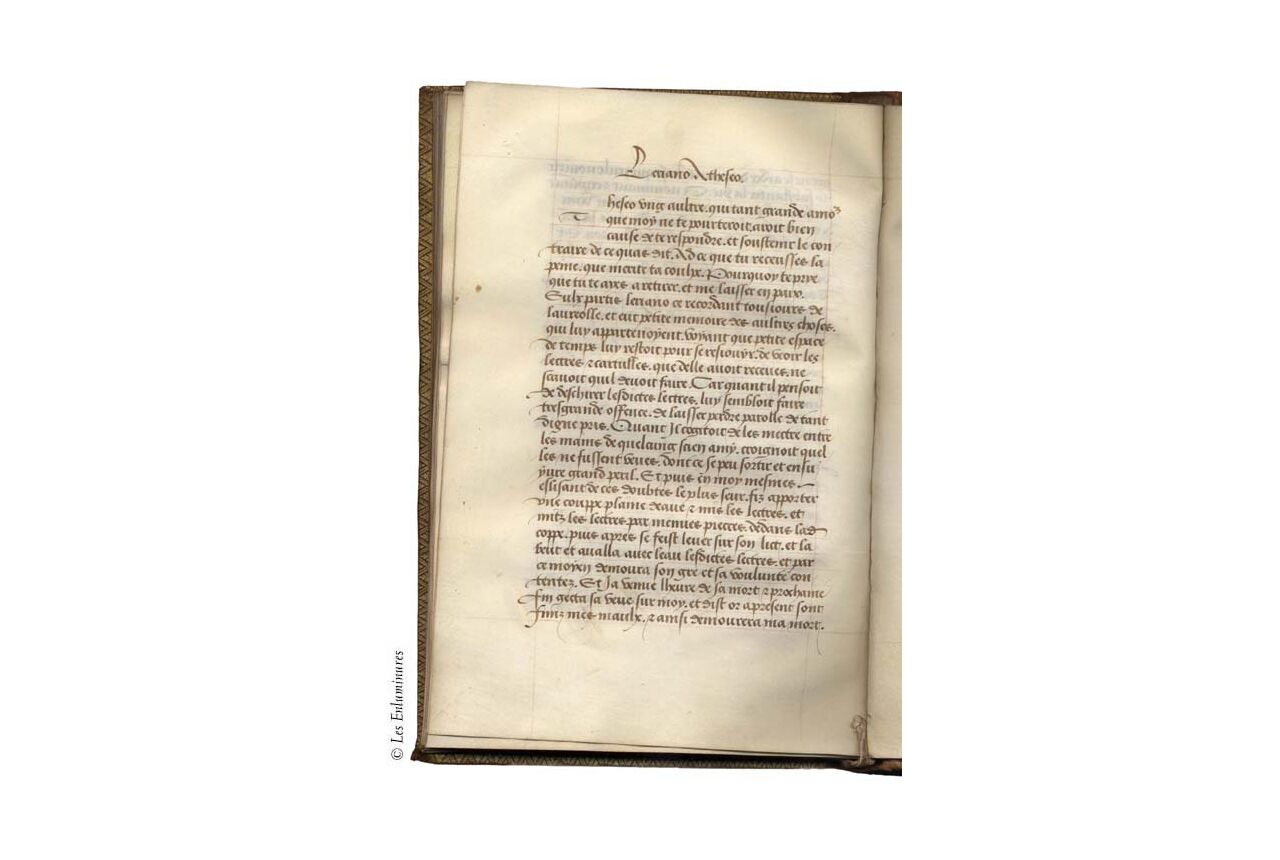 Leriano A theseo.
heseo ung aultre. qui tant grande amoʳ
T
que moy ne te pourteroit. avoit bien
cause de te respondre. et soustenir le con
traire de ce quas dit. Ad ce que tu receusses la
peine. que merite ta coulpe. Pourquoy te prye
que tu te ayes a retirer. et me laisser en paix.
leriano ce recordant tousiours de
laureolle. et eut petite memoire des aultres choses.
qui luy appartenoyent. voyant que petite espace
de temps luy restoit pour se resiouyr. de veoir les
lectres & cartulles. que delle avoit receues. ne
scavoit quil devoit faire. Car quant il pensoit
de deschirer lesdictes lectres. luy sembloit faire
tresgrande offence. de laisser perdre parolle de tant
digne pris. Quant Il cogitoit de les mectre entre
les mains de quelcung scien amy. croignoit quel
les ne fussent veues. dont ce peu sortir et ensu
yvre grand peril. Et puis en moy mesmes
eslisant de ces doubtes le plus seur. fiz apporter
une couppe plaine deaue & mis les lectres. et
mitz les lectres par menues pieces. dedans lad
coppe. puis apres se feist lever sur son lict. et la
beut et avalla avec leau lesdictes lectres. et par
ce moyen demoura son gre et sa voulunte con
tentez. Et Ja venue lheure de sa mort & prochaine
fin gecta sa veue sur moy. et dist or apresent sont
finiz mes maulx. & ainsi demourera ma mort.
© Les Enluminures